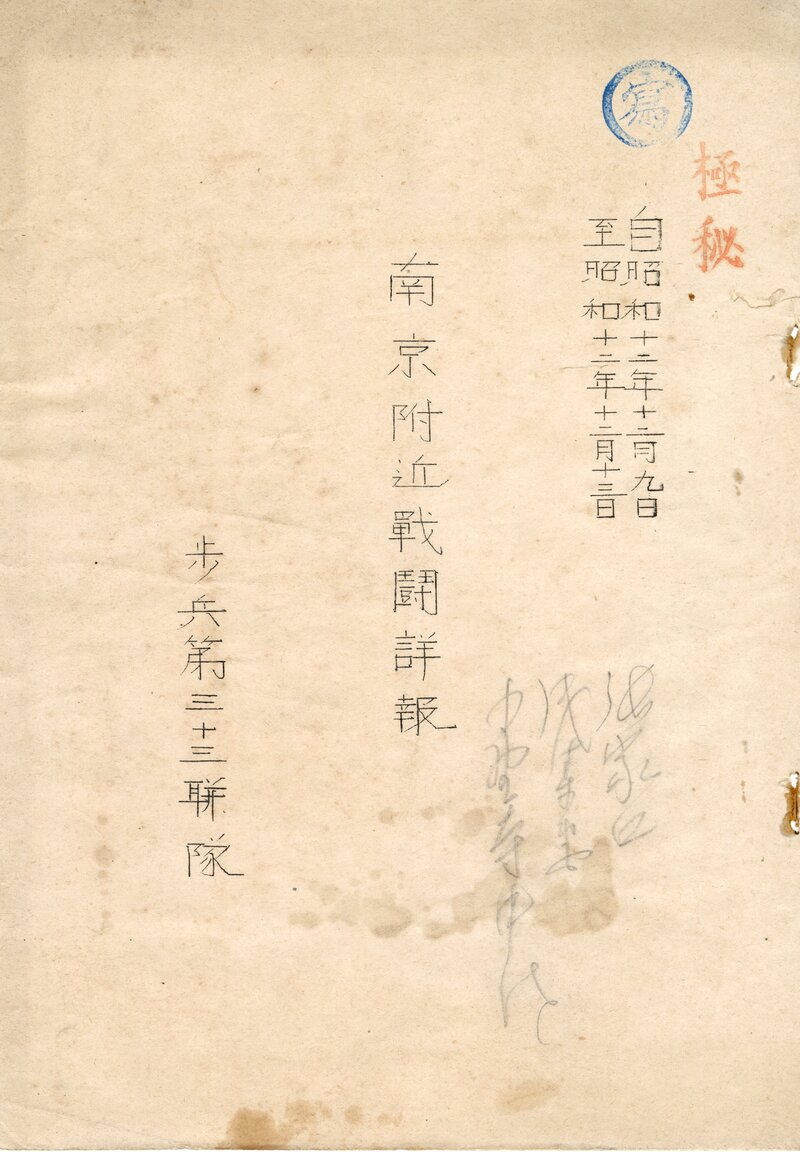 寫
極秘
自昭和十二年十二月九日
至昭和十二年十二月十三日
南京附近戰鬪詳報
步兵第三十三聯隊
張家口